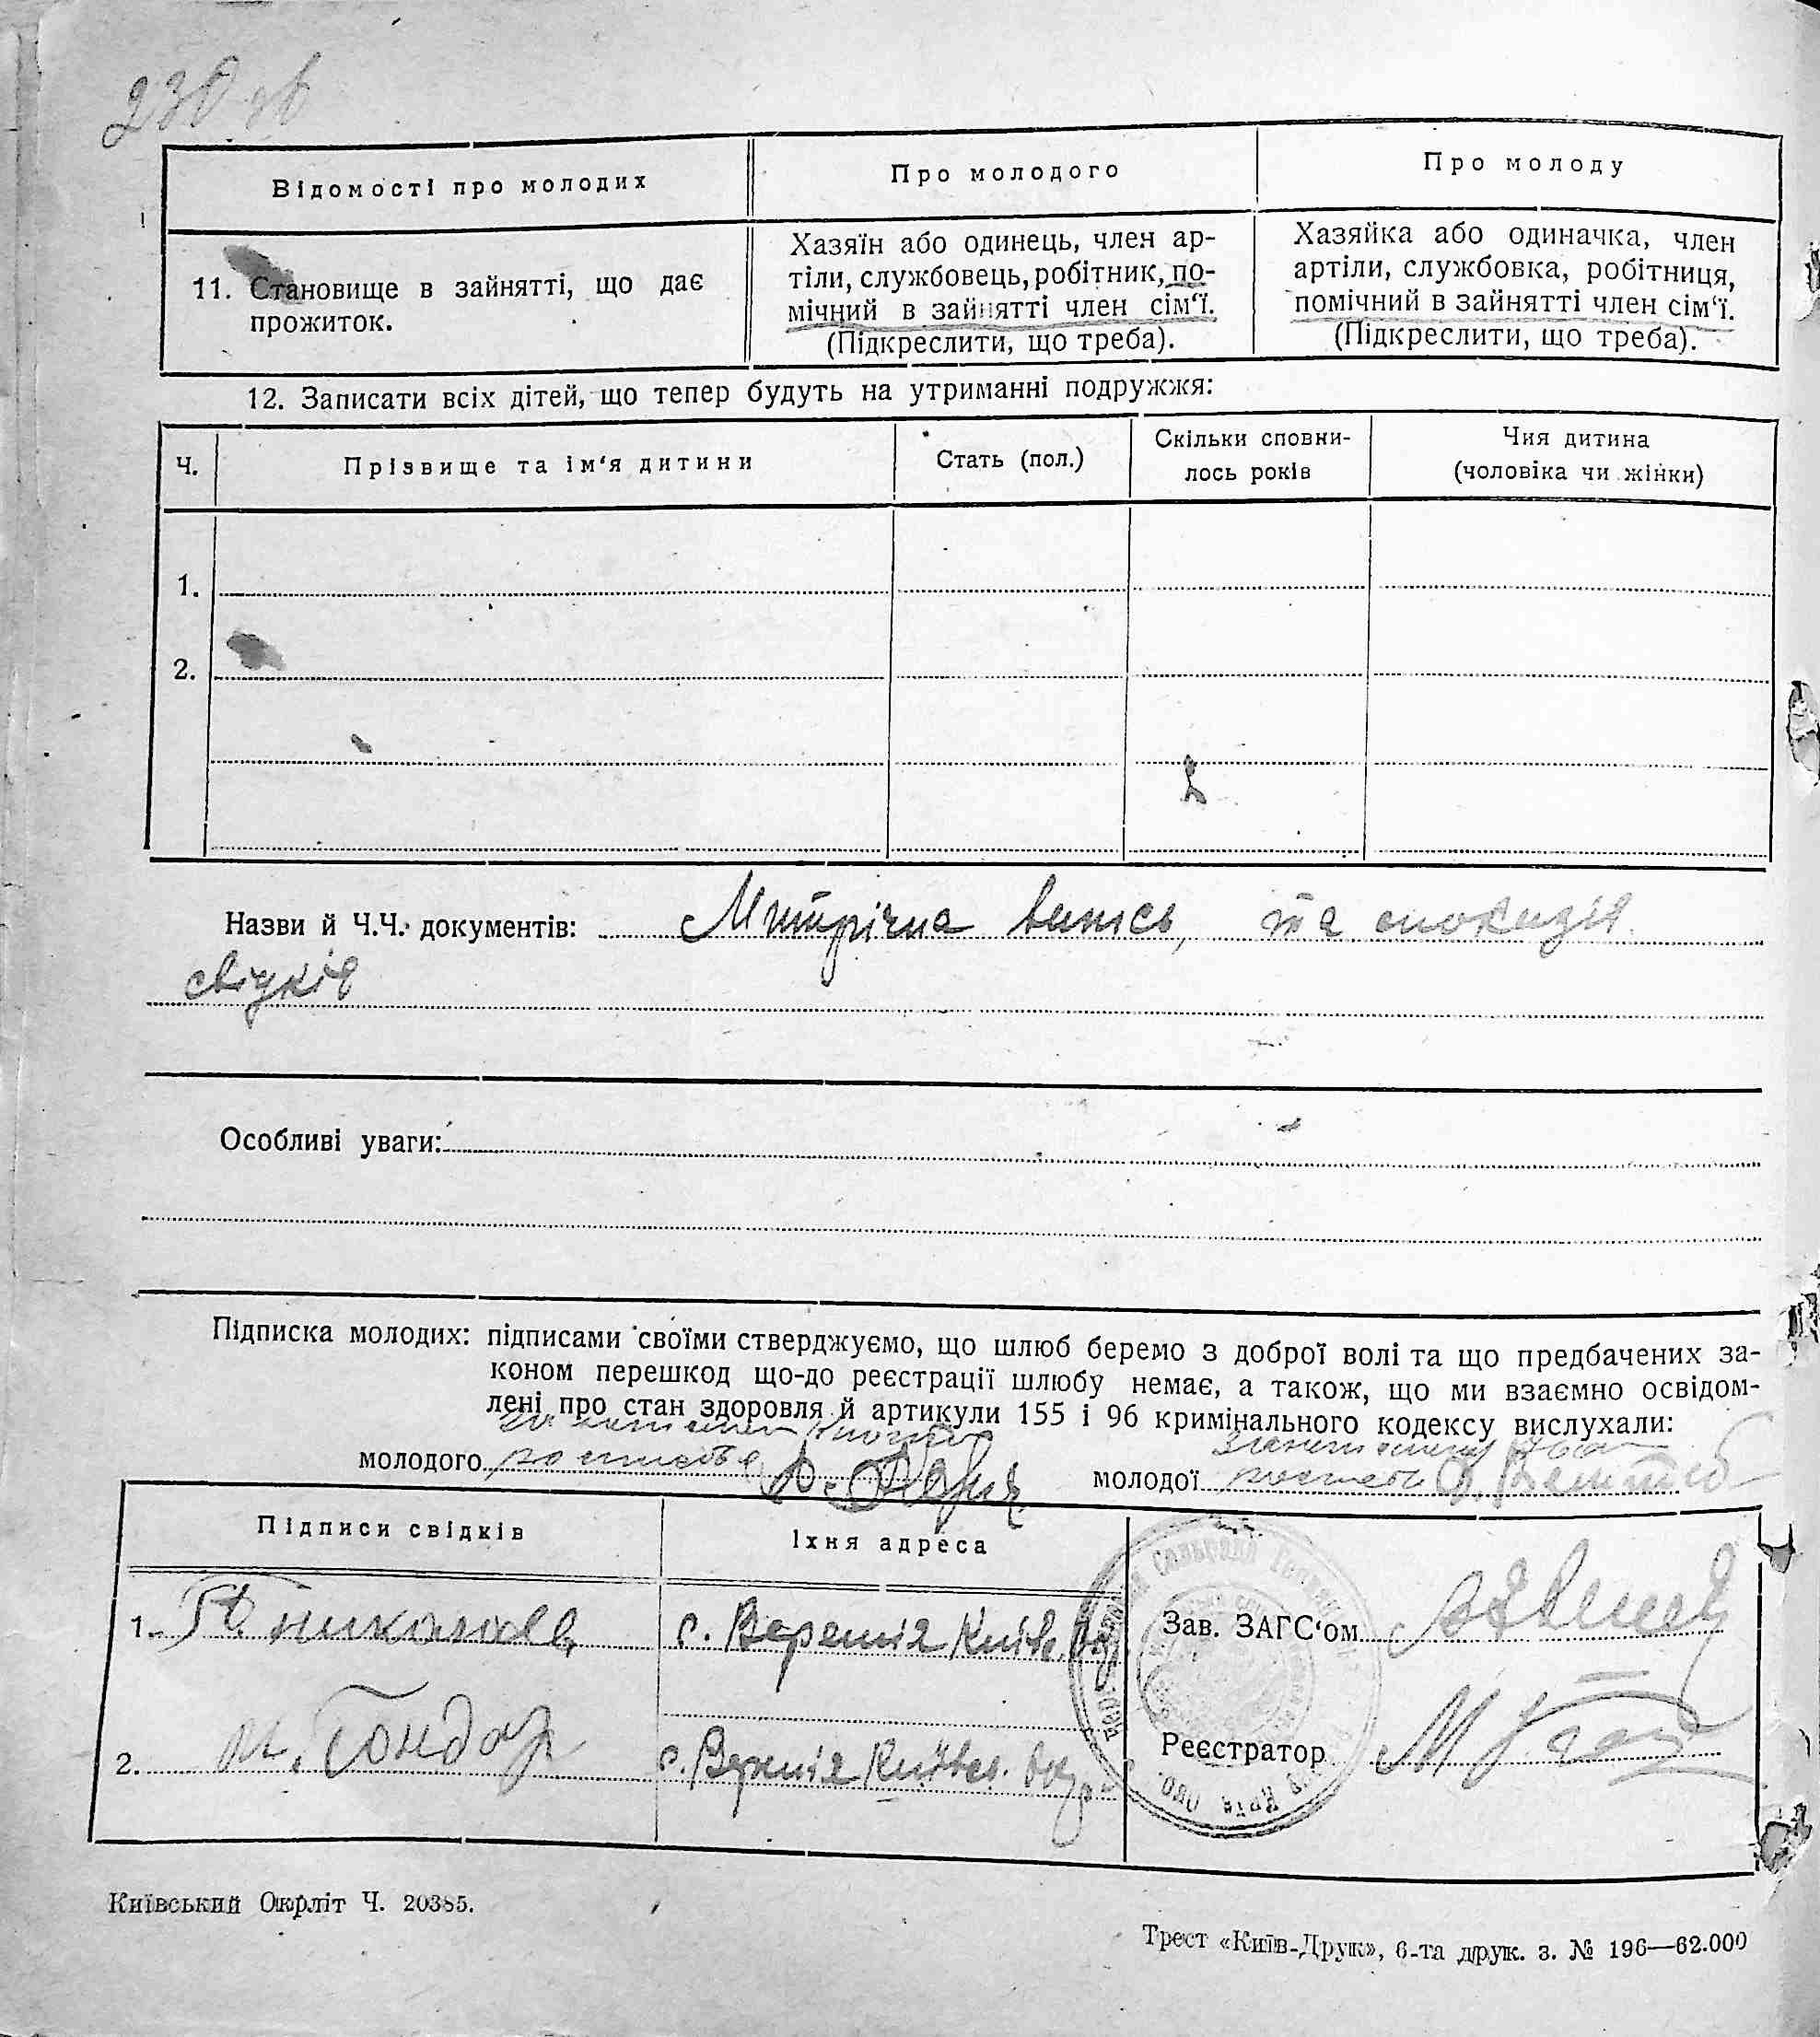 230 зв
Відомості про молодих
Про молодого
Про молоду
11. Становище в зайнятті, що дає
прожиток.
Хазяїн або одинець, член ар-
тіли, службовець, робітник, по-
мічний в зайнятті член сім‘ї.
(Підкреслити, що треба).
Хазяйка або одиначка, член
артіли, службовка, робітниця,
помічний в зайнятті член сім‘ї.
(Підкреслити, що треба).
12. Записати всіх дітей, що тепер будуть на утриманні подружжя:
Ч.
Прізвище та ім‘я дитини
Стать (пол.)
Скільки сповни-
лось років
Чия дитина
(чоловіка чи жінки)
1.
2.
Назви й Ч.Ч. документів: Митрічна випись, та
свідків
Особливі уваги:
Підписка молодих: підписами своїми стверджуємо, що шлюб беремо з доброї волі та що предбачених за-
коном перешкод що-до реєстрації шлюбу немає, а також, що ми взаємно освідом-
лені про стан здоровля й артикули 155 і 96 кримінального кодексу вислухали:
молодого
молодої
Підписи свідків
Їхня адреса
1.
с. Веремія Київ. окр
Зав. ЗАГС‘ом
2. Гондар
с. Веремія Київсь. окр
Реєстратор
Київський Окрліт Ч. 20385.
Трест «Київ-Друк», 6-та друк. з. № 196—62.000